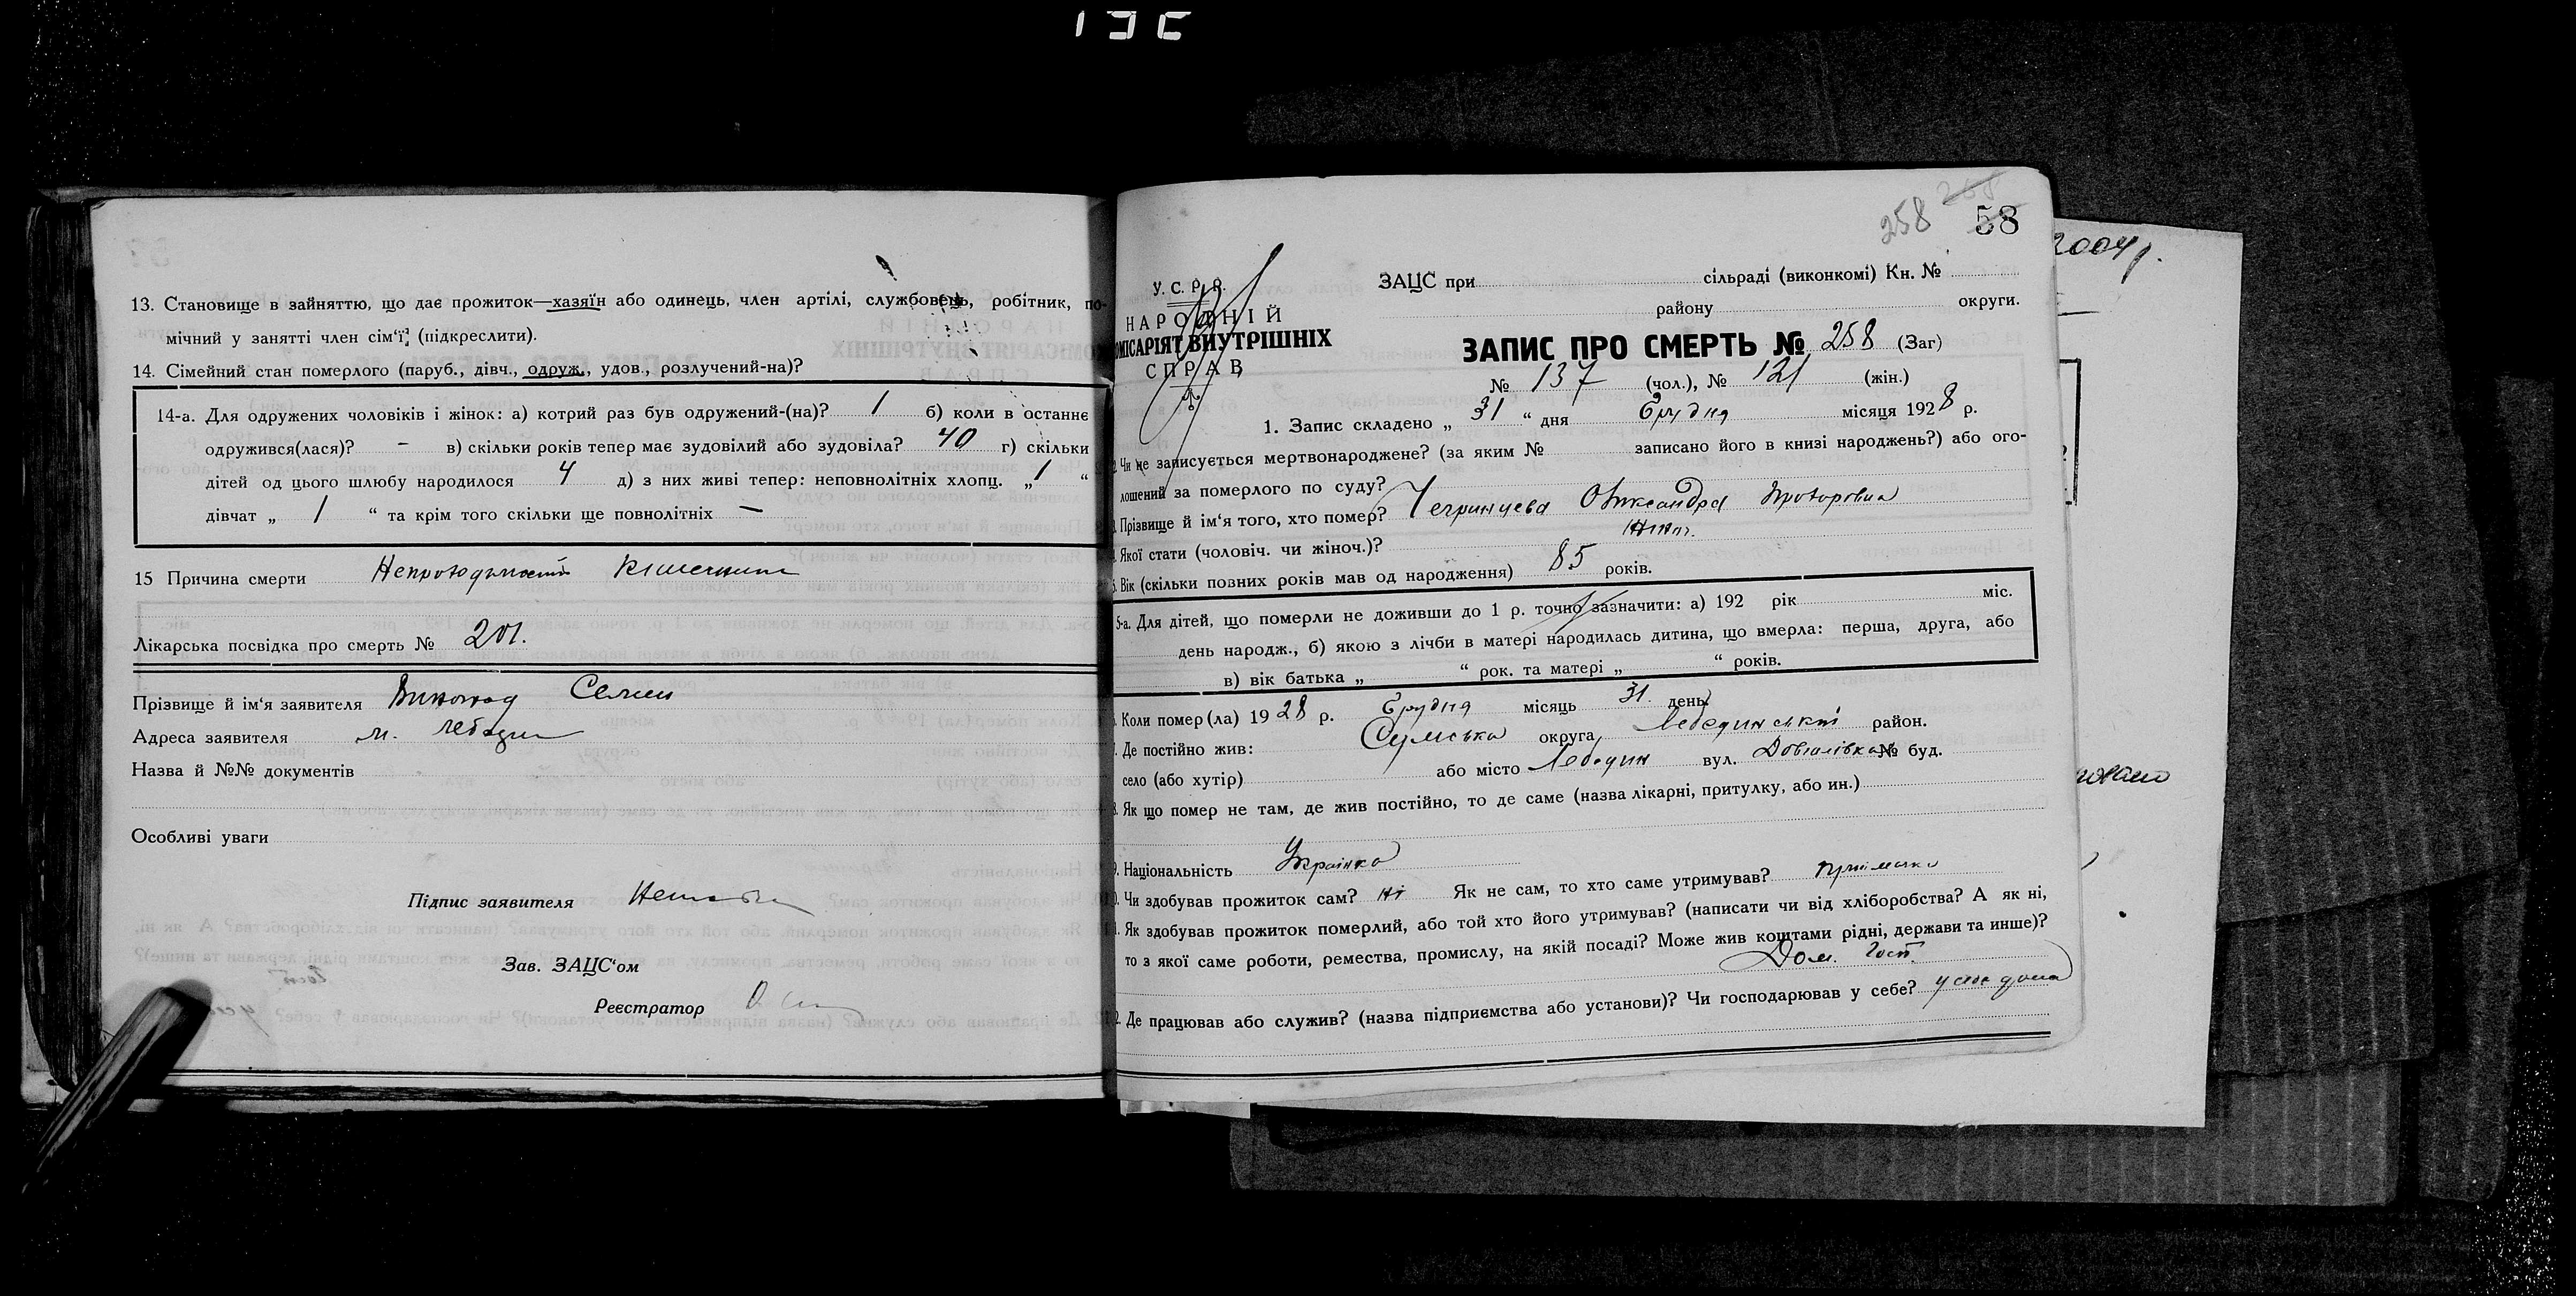 13. Становище в зайняттю, що дає прожиток—хазяїн або одинець, член артілі, службовець, робітник, по-
мічний у занятті член сім'ї, (підкреслити).
14. Сімейний стан померлого (паруб., дівч., одруж., удов., розлучений-на)?
14-а. Для одружених чоловіків і жінок: а) котрий раз був одружений-(на)? 1 б) коли в останнє
одружився(лася)? — в) скільки років тепер має зудовілий або зудовіла? 40 г) скільки
дітей од цього шлюбу народилося 4 д) з них живі тепер: неповнолітніх хлопц. „ 1 “
дівчат „ 1 “ та крім того скільки ще повнолітніх —
15 Причина смерти
Лікарська посвідка про смерть № 201.
Прізвище й ім'я заявителя
Адреса заявителя м. Лебедин
Назва й №№ документів
Особливі уваги
Підпис заявителя
Зав. ЗАЦС'ом
Реєстратор
258
58
У. С. Р. Р.
НАРОДНІЙ
КОМІСАРІЯТ ВНУТРІШНІХ
СПРАВ
ЗАЦС при сільраді (виконкомі) Кн. №
району округи.
ЗАПИС ПРО СМЕРТЬ № 258 (Заг)
№ 137 (чол.), № 121 (жін.)
1. Запис складено „ 31 “ дня Грудня місяця 1928 р.
2. Чи не записується мертвонароджене? (за яким № записано його в книзі народжень?) або ого-
лошений за померлого по суду?
3. Прізвище й ім'я того, хто помер? Олександра
4. Якої стати (чоловіч. чи жіноч.)? жіноч.
5. Вік (скільки повних років мав од народження) 85 років.
5-а. Для дітей, що померли не доживши до 1 р. точно зазначити: а) 192 рік міс.
день народж., б) якою з лічби в матері народилась дитина, що вмерла: перша, друга, або
в) вік батька „ “ рок. та матері „ “ років.
6. Коли помер(ла) 1928 р. Грудня місяць 31 день.
7. Де постійно жив: Сумська округа, Лебединський район.
село (або хутір) або місто Лебедин вул. № буд.
8. Як що помер не там, де жив постійно, то де саме (назва лікарні, притулку, або ин.)
9. Національність Українка
10. Чи здобував прожиток сам? ні Як не сам, то хто саме утримував?
11. Як здобував прожиток померлий, або той хто його утримував? (написати чи від хліборобства? А як ні,
то з якої саме роботи, ремества, промислу, на якій посаді? Може жив коштами рідні, держави та инше)?
Дом. госп.
12. Де працював або служив? (назва підприємства або установи)? Чи господарював у себе? у себе дома
2004 р.